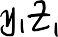 y₁z₁